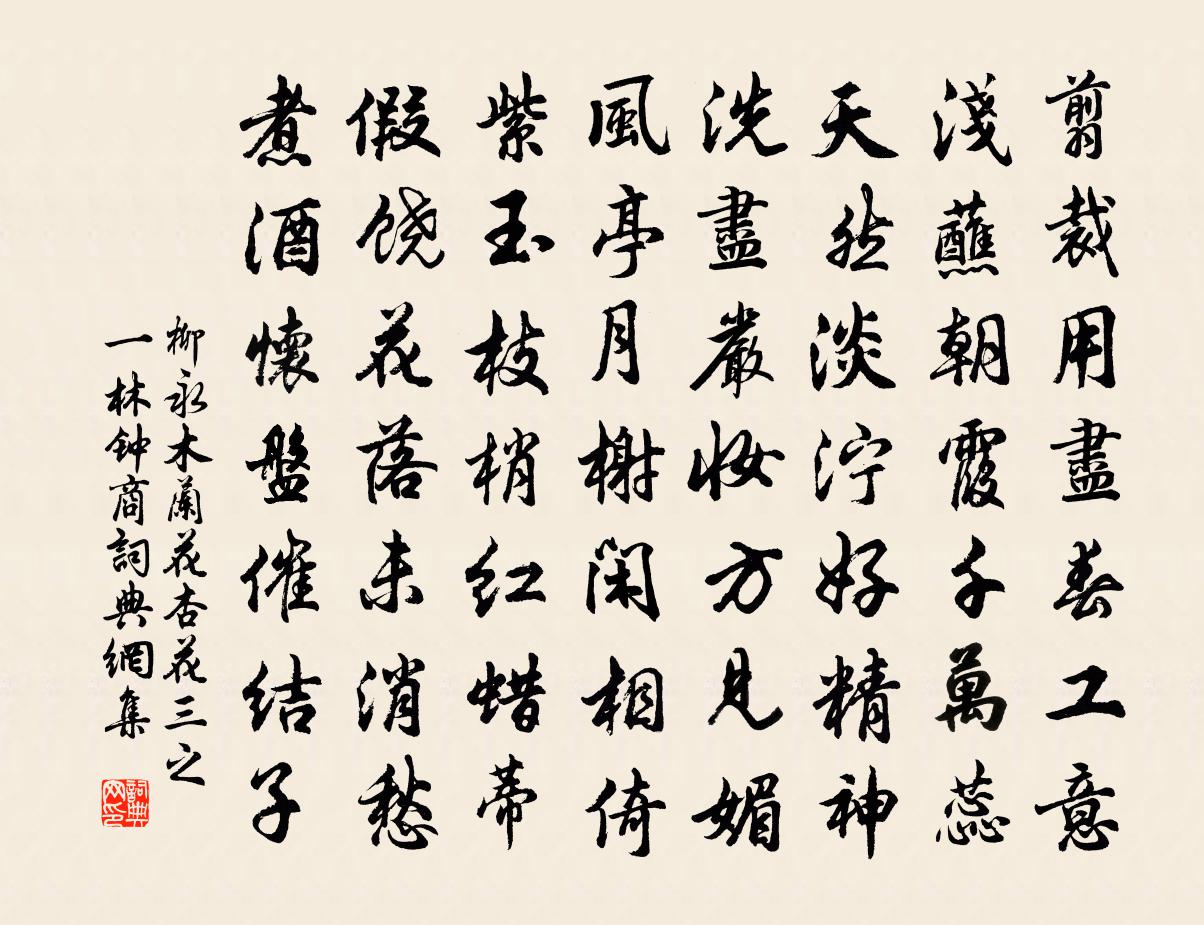 翦裁用盡春工意
淺蘸朝霞千萬蕊
天然淡泞好精神
洗盡嚴妝方見媚
風亭月榭閑相倚
紫玉枝梢红蜡蒂
假饶花落未消愁
煮酒懷盤催结子
柳永木蘭花杏花三之
一林钟商詞典網集
詞典网印